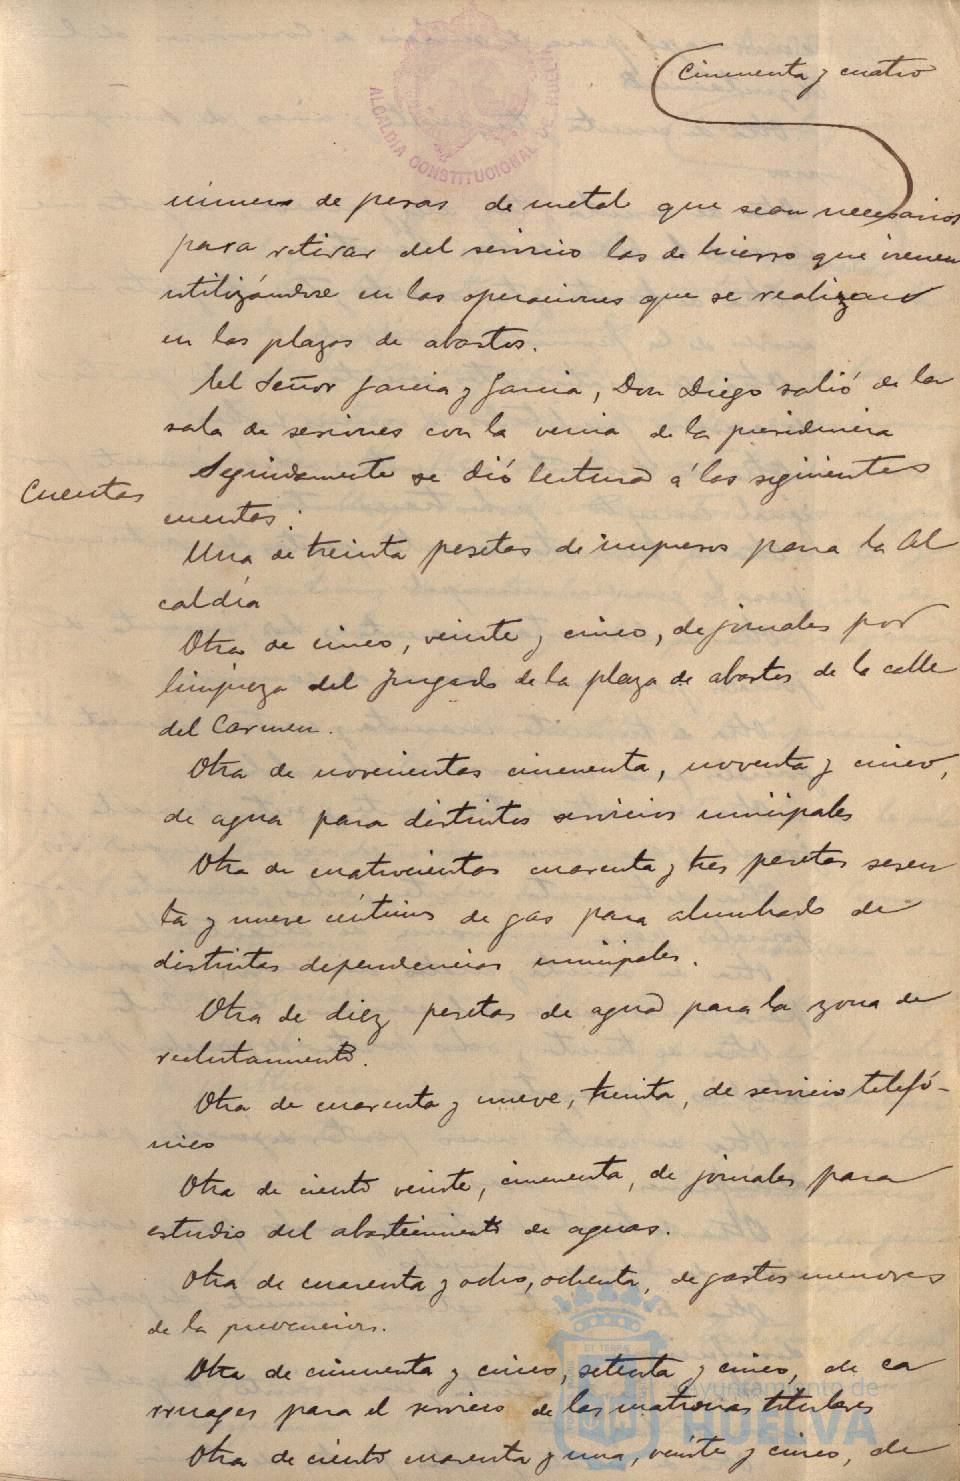 Cincuenta y cuatro
ALCALDIA CONSTITUCIONAL DE HUELVA
número de pesas de metal que sean necesarios
para retirar del servicio las de hierro que vienen
utilizándose en las operaciones que se realizan
en las plazas de abastos.
El Señor García y García, Don Diego salió de la
sala de sesiones con la venia de la presidencia
Cuentas
Seguidamente se dió lectura á las siguientes
cuentas:
Una de treinta pesetas de impresos para la Al
caldía
Otra de cinco, veinte y cinco, de jornales por
limpieza del juzgado de la plaza de abastos de la calle
del Carmen.
Otra de novecientas cincuenta, noventa y cinco,
de agua para distintos servicios municipales
Otra de cuatrocientas cuarenta y tres pesetas sesen
ta y nueve céntimos de gas para alumbrado de
distintas dependencias municipales.
Otra de diez pesetas de agua para la zona de
reclutamiento.
Otra de cuarenta y nueve, treinta, de servicio telefó-
nico
Otra de ciento veinte, cincuenta, de jornales para
estudio del abastecimiento de aguas.
Otra de cuarenta y ocho, ochenta, de gastos menores
de la prevención.
Otra de cincuenta y cinco, setenta y cinco, de ca
rruages para el servicio de las matronas titulares
Otra de ciento cuarenta y una, veinte y cinco, de
Ayuntamiento de
HUELVA